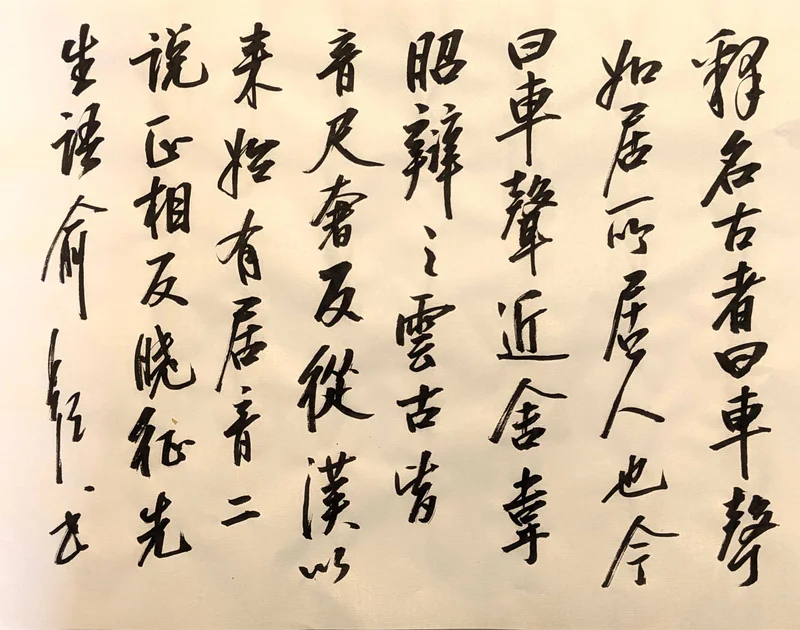 釋名古者曰車聲
如居所居人也今
曰車聲近舍韋
昭辯之雲古皆
音尺奢反從漢以
来始有居音二
说正相反晓征先
生語俞